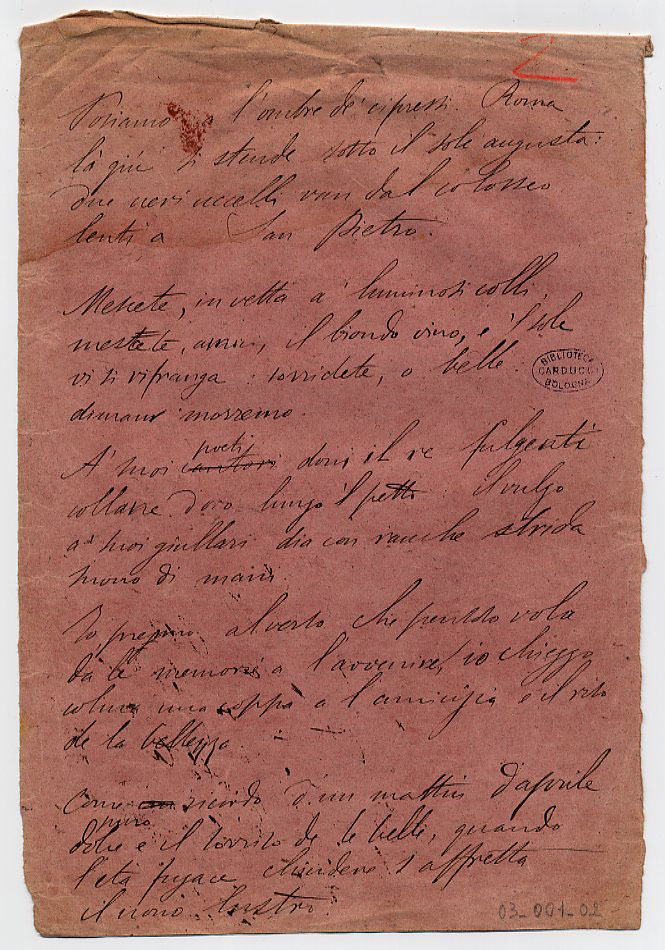 2
Posiamo a l'ombre de' cipressi. Roma
là giù si stende sotto il sole augusta:
due neri uccelli van dal colosseo
lenti a San Pietro.
Mescete, in vetta a' luminosi colli,
mescete, amici, il biondo vino, e 'l sole
vi si rifranga: sorridete, o belle:
dimani morremo.
BIBLIOTECA
CARDUCCI
BOLOGNA
poeti
A' suoi cantori doni il re fulgenti
collane d'oro lungo 'l petto: il vulgo
a' suoi giullari dia con rauche strida
suono di mani.
Io premio al verso che possente vola
da le memorie a l'avvenire, io chieggo
colma una coppa a l'amicizia e il riso
de la bellezza.
Come ricordo d'un mattin d'aprile
puro
dolce è il sorriso de le belle, quando
l'età fugace chiudere s'affretta
il nono lustro.
03_001_02